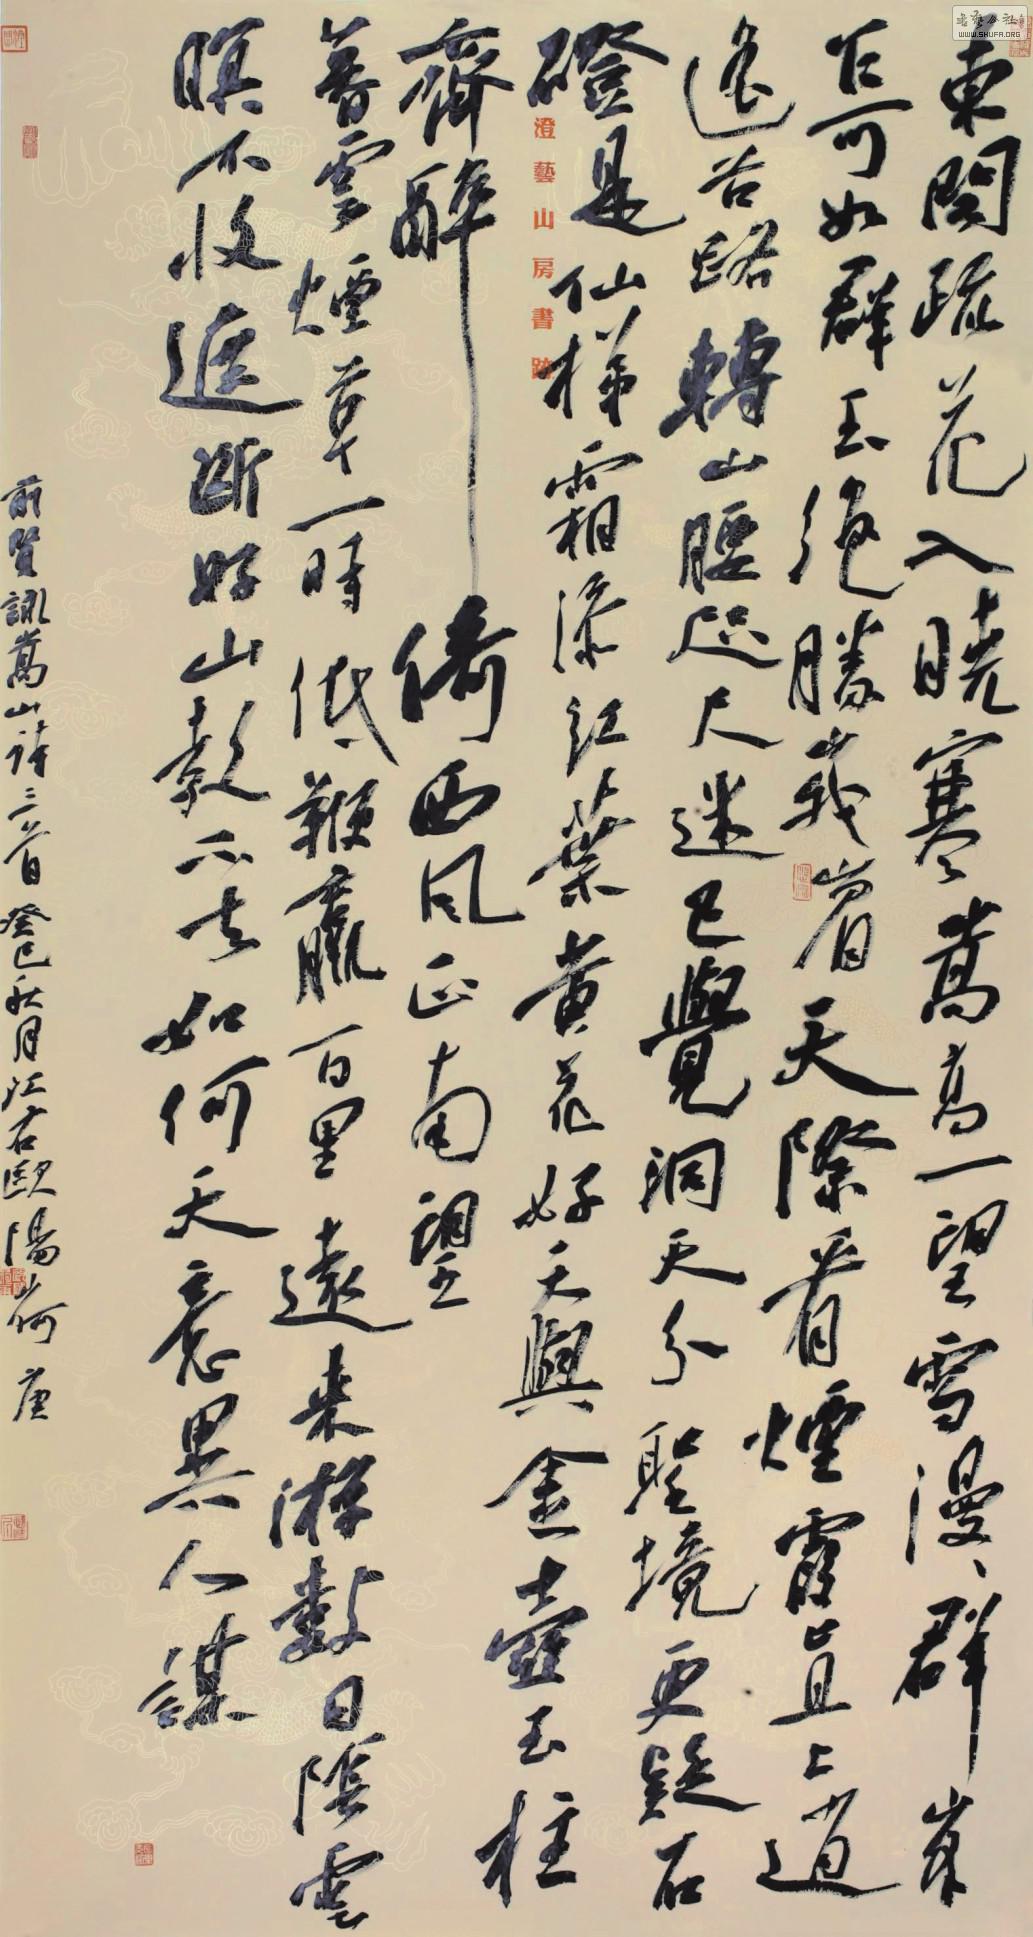 東関疏花入曉寒嵩高一望雪漫漫群峯
叵可如群玉絶勝峩眉天際看煙霞直上逍
遙谷路轉山腰咫尺迷已覺洞天分聖境更疑石
磴是仙梯霜添紅葉黄花好天與金壺玉柱
齊醉倚西風正南望
暮雲煙草一時低鞭羸百里遠来游數日陰雲
暝不收遮斷好山教不去如何天意異人謀
前賢詠嵩山詩三首癸巳秋月江右歐陽荷庚
澄藝山房書跡
書藝公社
WWW.SHUFA.ORG